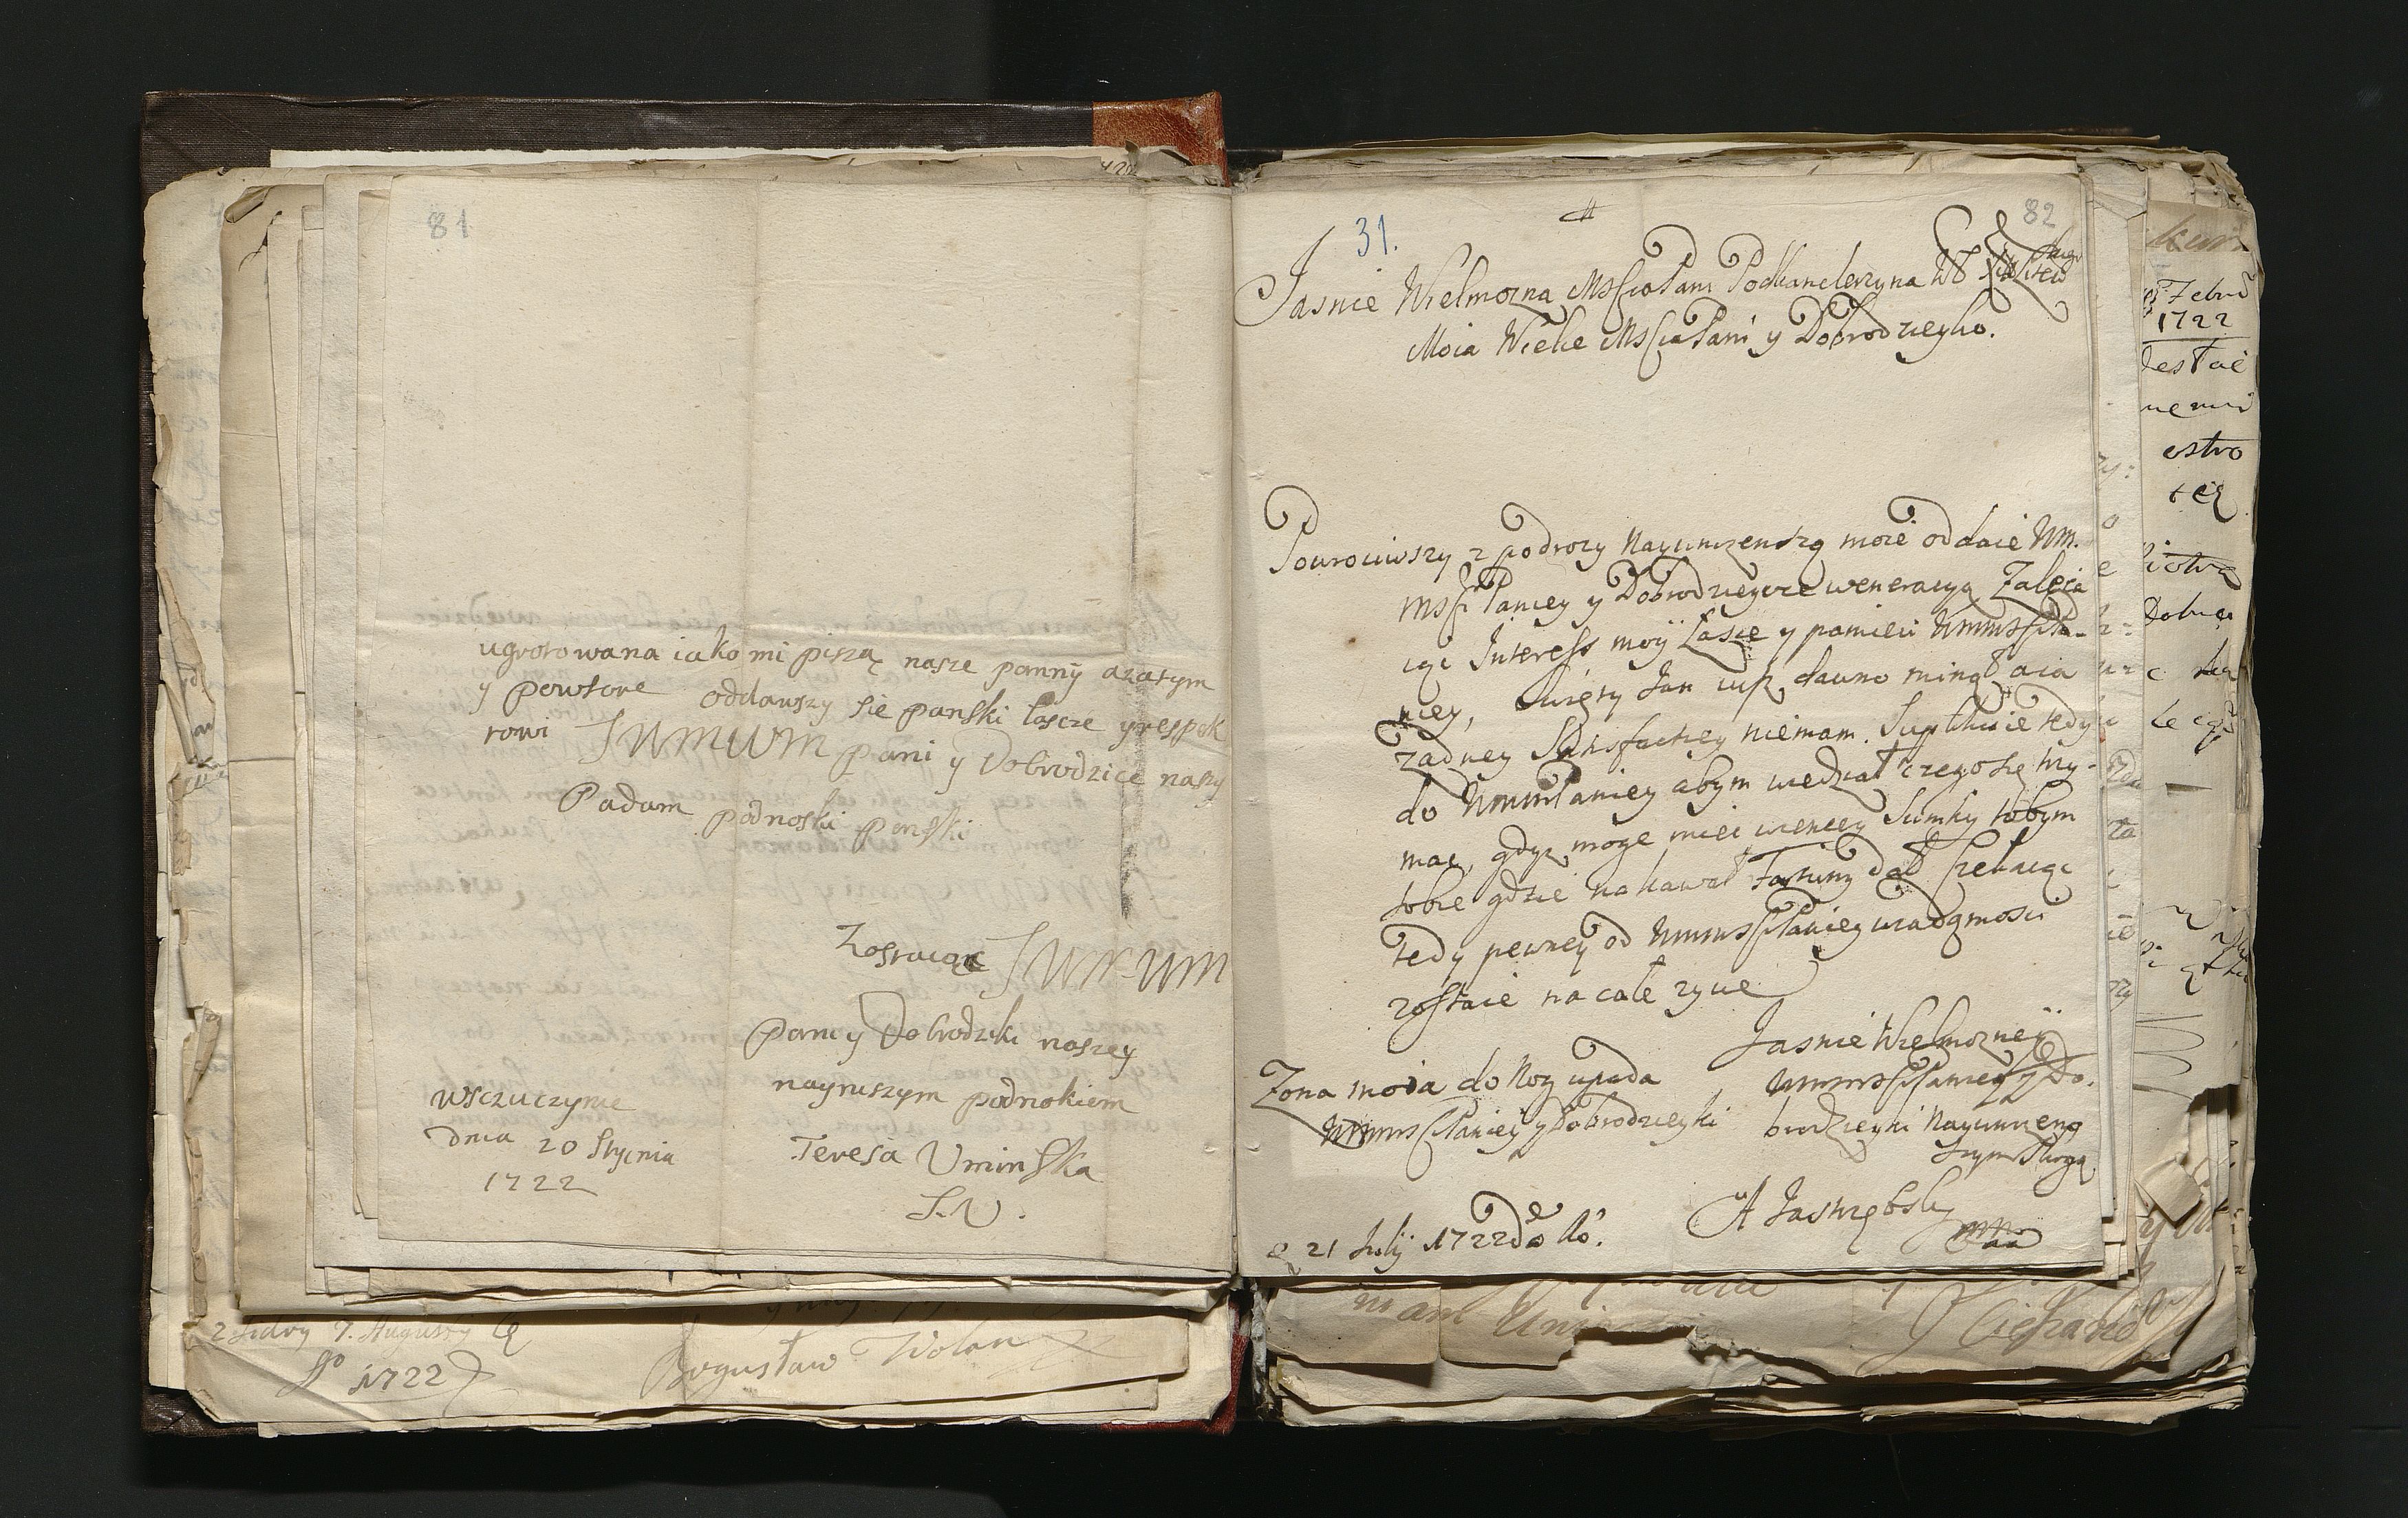 81
ugrotowana iako mi piszą nasze panny azatym
y powtore oddawszy sie panski łascze y respek
towi JWMWM pani y Dobrodzice naszy
Padam podnoski panski
Zostaiąc JWMWM
pani y Dobrodziki naszey
nayniszym podnokiem
Teresa Uminska
S. U.
wsczuczynie
dnia 20 Stycnia
1722
2 August
1722
Bogusław
31.
82
Jasnie Wielmozna MsCia Pani Podkanclerzyna
Moia Wielce MsCia Pani y Dobrodzieyko.
Powrociwszy z podrozy Nayunizenszą moię oddaię Wm.
MsC Paniey y Dobrodzieyce weneracyą Zaleca
iąc Interess moy Łasce y pamieci WmmsCPa-
niey, swięty Jan iusz dawno minął aia
zadney Satisfactiey niemam. Suplikuię tedy
do WmmPaniey abym wiedział czego się trzy-
mac, gdysz mogę miec wiencey Sumky tobym
sobie gdzie na kawał Fortuny dał Czekaiąc
tedy pewney od WmmsCPaniey wiadomosci
zostaie na całe zycie
Jasnie Wielmozney
WmmsCPaniey y Do-
brodzieyki Nayunizeng
szym Sługą
A Jastrzębsky
mp
Zona moia do Nog upada
WmmsCPaniey y Dobrodzieyki
21 Julij 1722
1722
estwo
mam